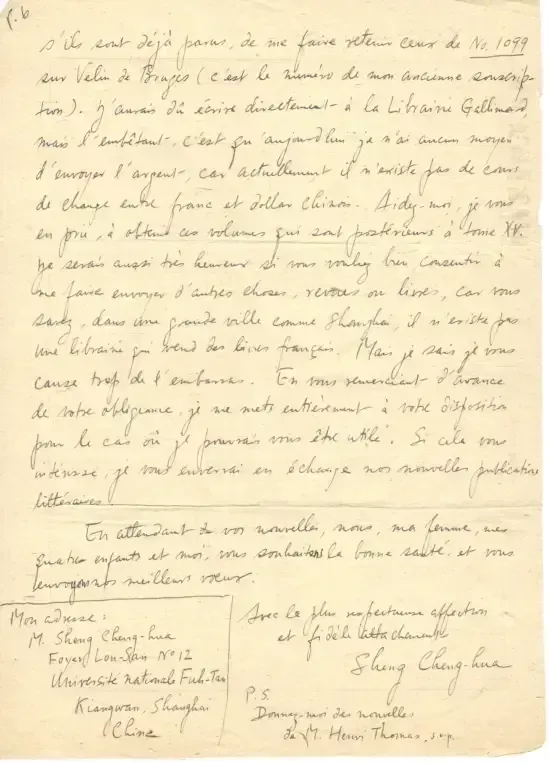 p. 6
s'ils sont déjà parus, de me faire retenir ceux de No. 1099
sur Velin de Bruges (c'est le numéro de mon ancienne souscrip-
tion). J'aurais dû écrire directement à la Librairie Gallimard,
mais l'embêtant, c'est qu'aujourd'hui je n'ai aucun moyen
d'envoyer l'argent, car actuellement il n'existe pas de cours
de change entre franc et dollar chinois. Aidez-moi, je vous
en prie, à obtenir ces volumes qui sont postérieurs à tome XV.
Je serais aussi très heureux si vous vouliez bien consentir à
me faire envoyer d'autres choses, revues ou livres, car vous
savez, dans une grande ville comme Shanghai, il n'existe pas
une librairie qui vend des livres français. Mais je sais je vous
cause trop de l'embarras. En vous remerciant d'avance
de votre obligeance, je me mets entièrement à votre disposition
pour le cas où je pourrais vous être utile. Si cela vous
intéresse, je vous enverrai en échange nos nouvelles publications
littéraires.
En attendant de vos nouvelles, nous, ma femme, mes
quatre enfants et moi, vous souhaitons la bonne santé, et vous
envoyons nos meilleurs vœux.
Avec la plus respectueuse affection
et fidèle attachement
Sheng Cheng-hua
Mon adresse:
M. Sheng Cheng-hua
Foyer Lou-San No 12
Université nationale Fuh-Tan
Kiangwan, Shanghai
Chine
P.S.
Donnez-moi des nouvelles
de M. Henri Thomas, s.v.p.